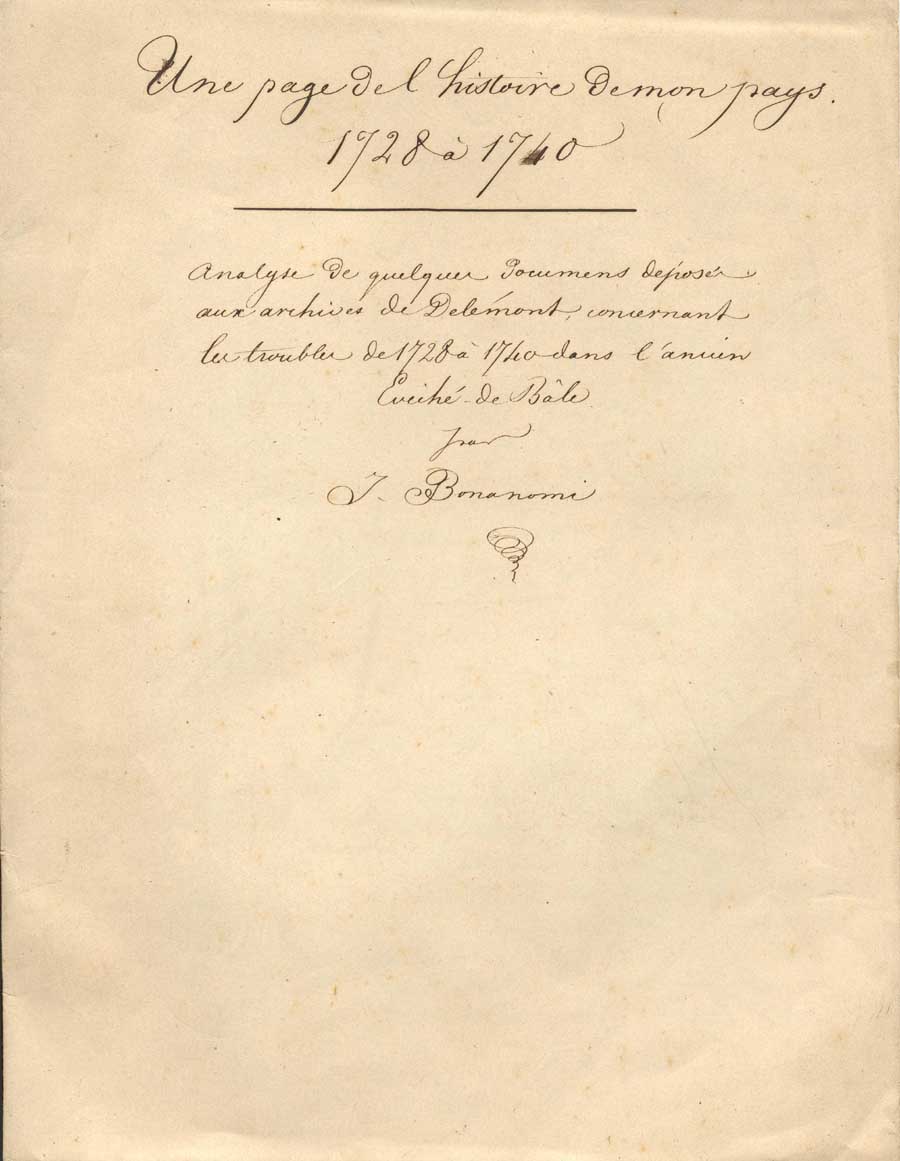 Une page de l'histoire de mon pays.
1728 à 1740
Analyse de quelques documens déposés
aux archives de Delémont, concernant
les troubles de 1728 à 1740 dans l'ancien
Evêché de Bâle
par
J. Bonanomi